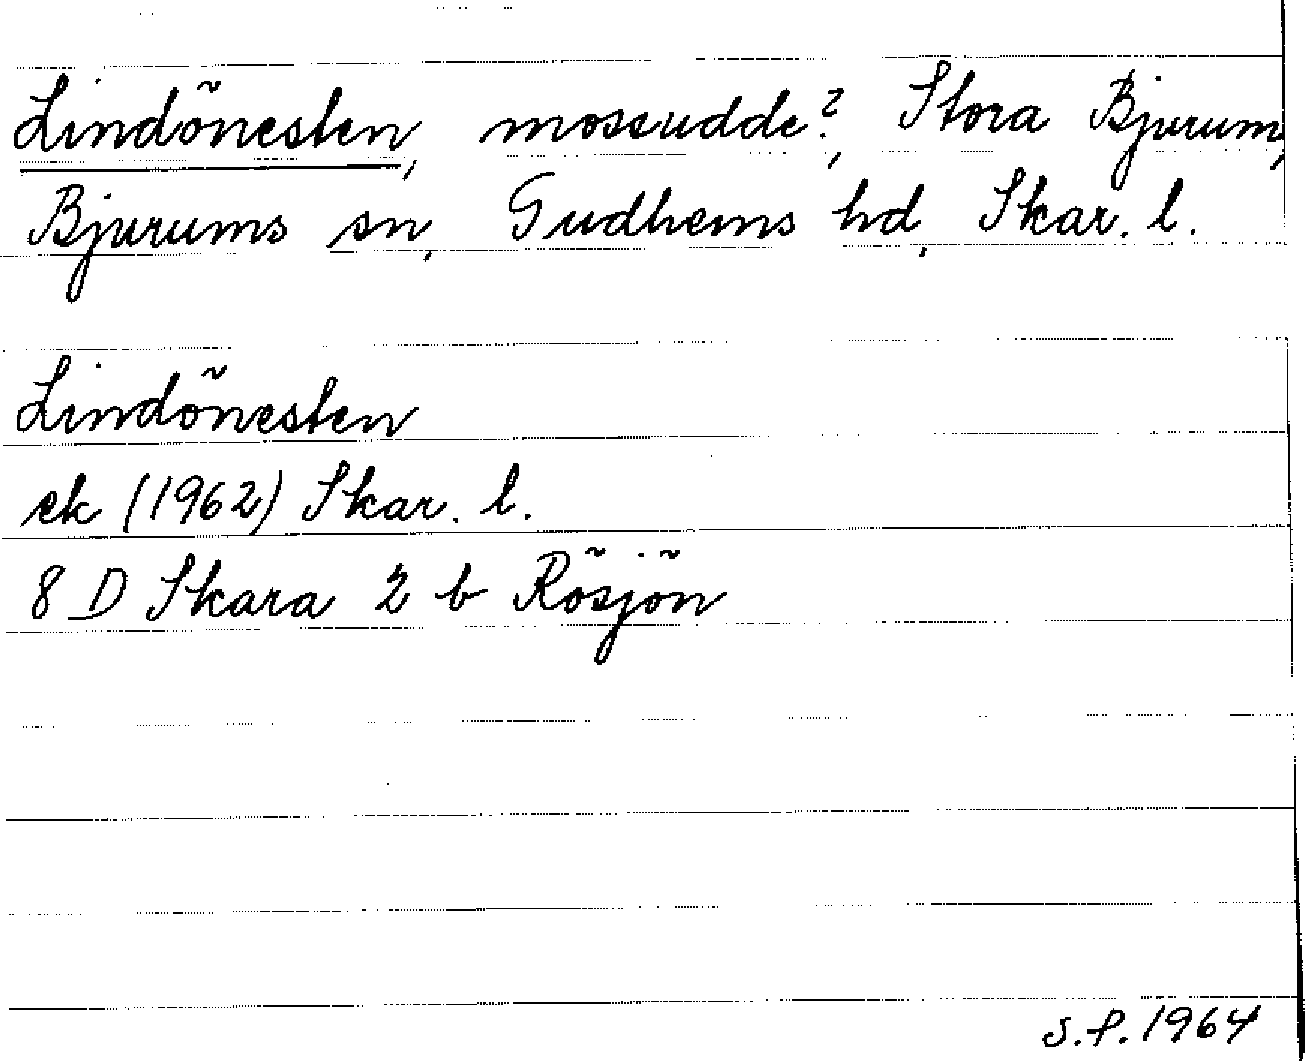 Lindönesten, mosseudde?, Stora Bjurum,
Bjurums sn, Gudhems hd, Skar. l.
Lindönesten
ek (1962) Skar. l.
8 D Skara 2 b Rösjön
S.P. 1964